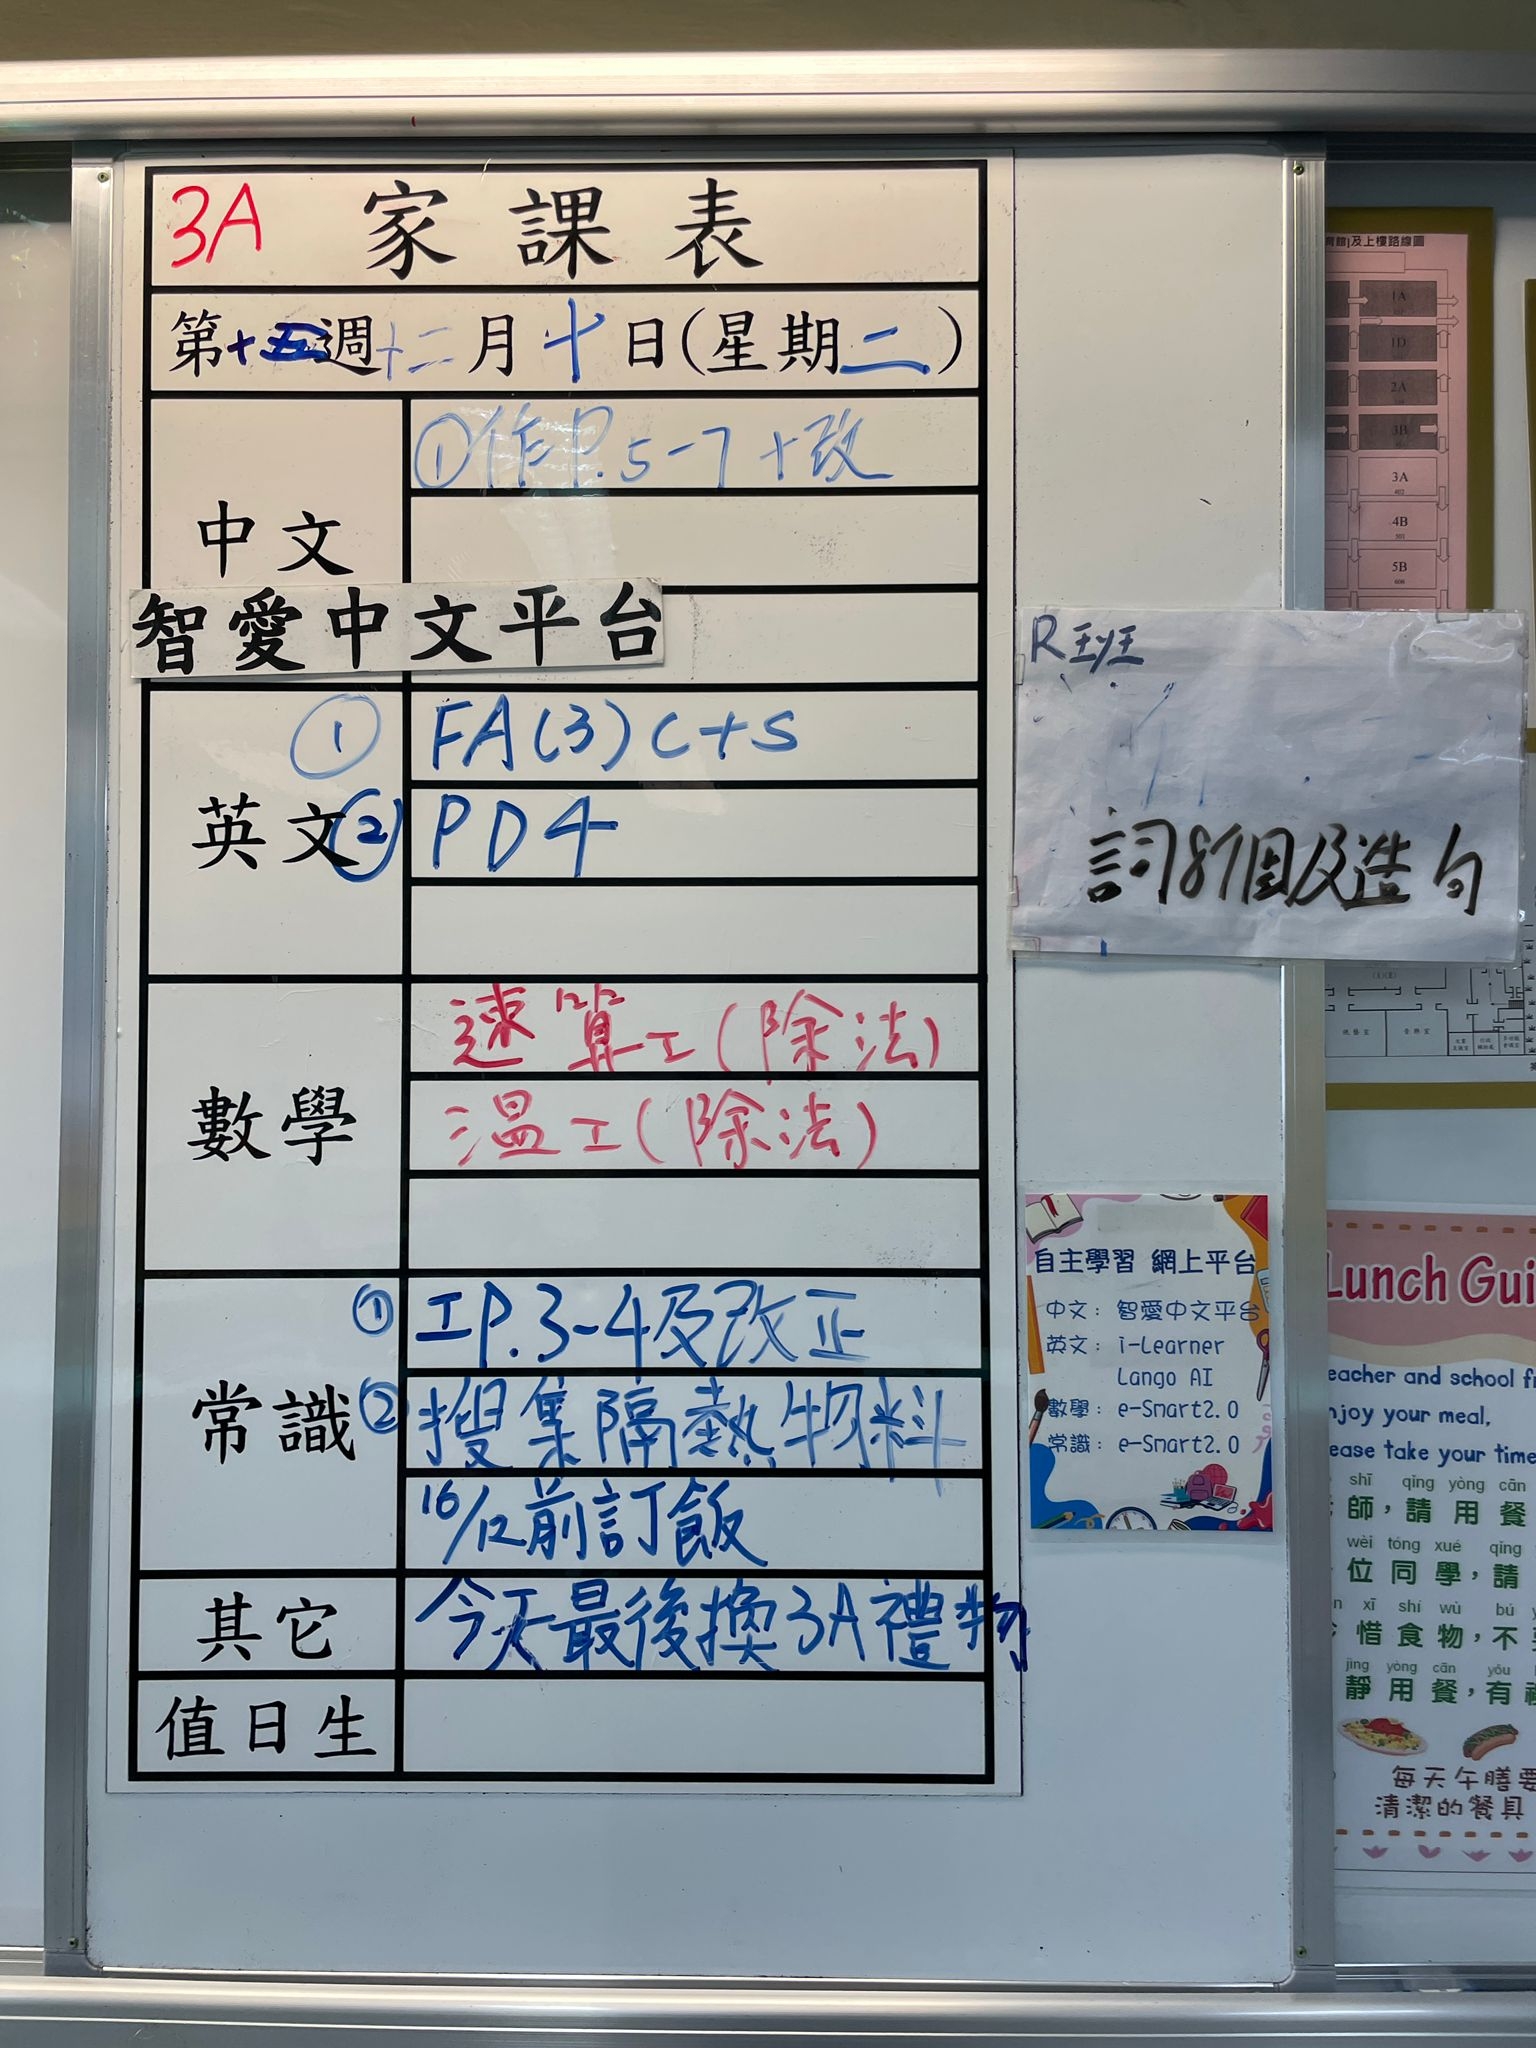 3A 家課表
第十五週十二月十日(星期二)
中文
①作P.5-7+改
智愛中文平台
英文
① FA(3)C+S
② PD4
數學
速算工(除法)
溫工(除法)
常識
①工P.3-4及改正
②搜集隔熱物料
16/12前訂飯
其它
今天最後換3A禮物
值日生
R班
詞8個及造句
自主學習 網上平台
中文: 智愛中文平台
英文: i-Learner
Lango AI
數學: e-Smart2.0
常識: e-Smart2.0
及上樓路線圖
1A
1D
2A
3B
3A
402
4B
501
5B
608
視藝室
音樂室
Lunch Gui
eacher and school fr
njoy your meal,
ease take your time
shī qǐng yòng cān
師,請用餐
wèi tóng xué qǐng
位同學,請
xī shí wù bú
惜食物,不
jìng yòng cān yǒu
靜用餐,有
每天午膳要
清潔的餐具